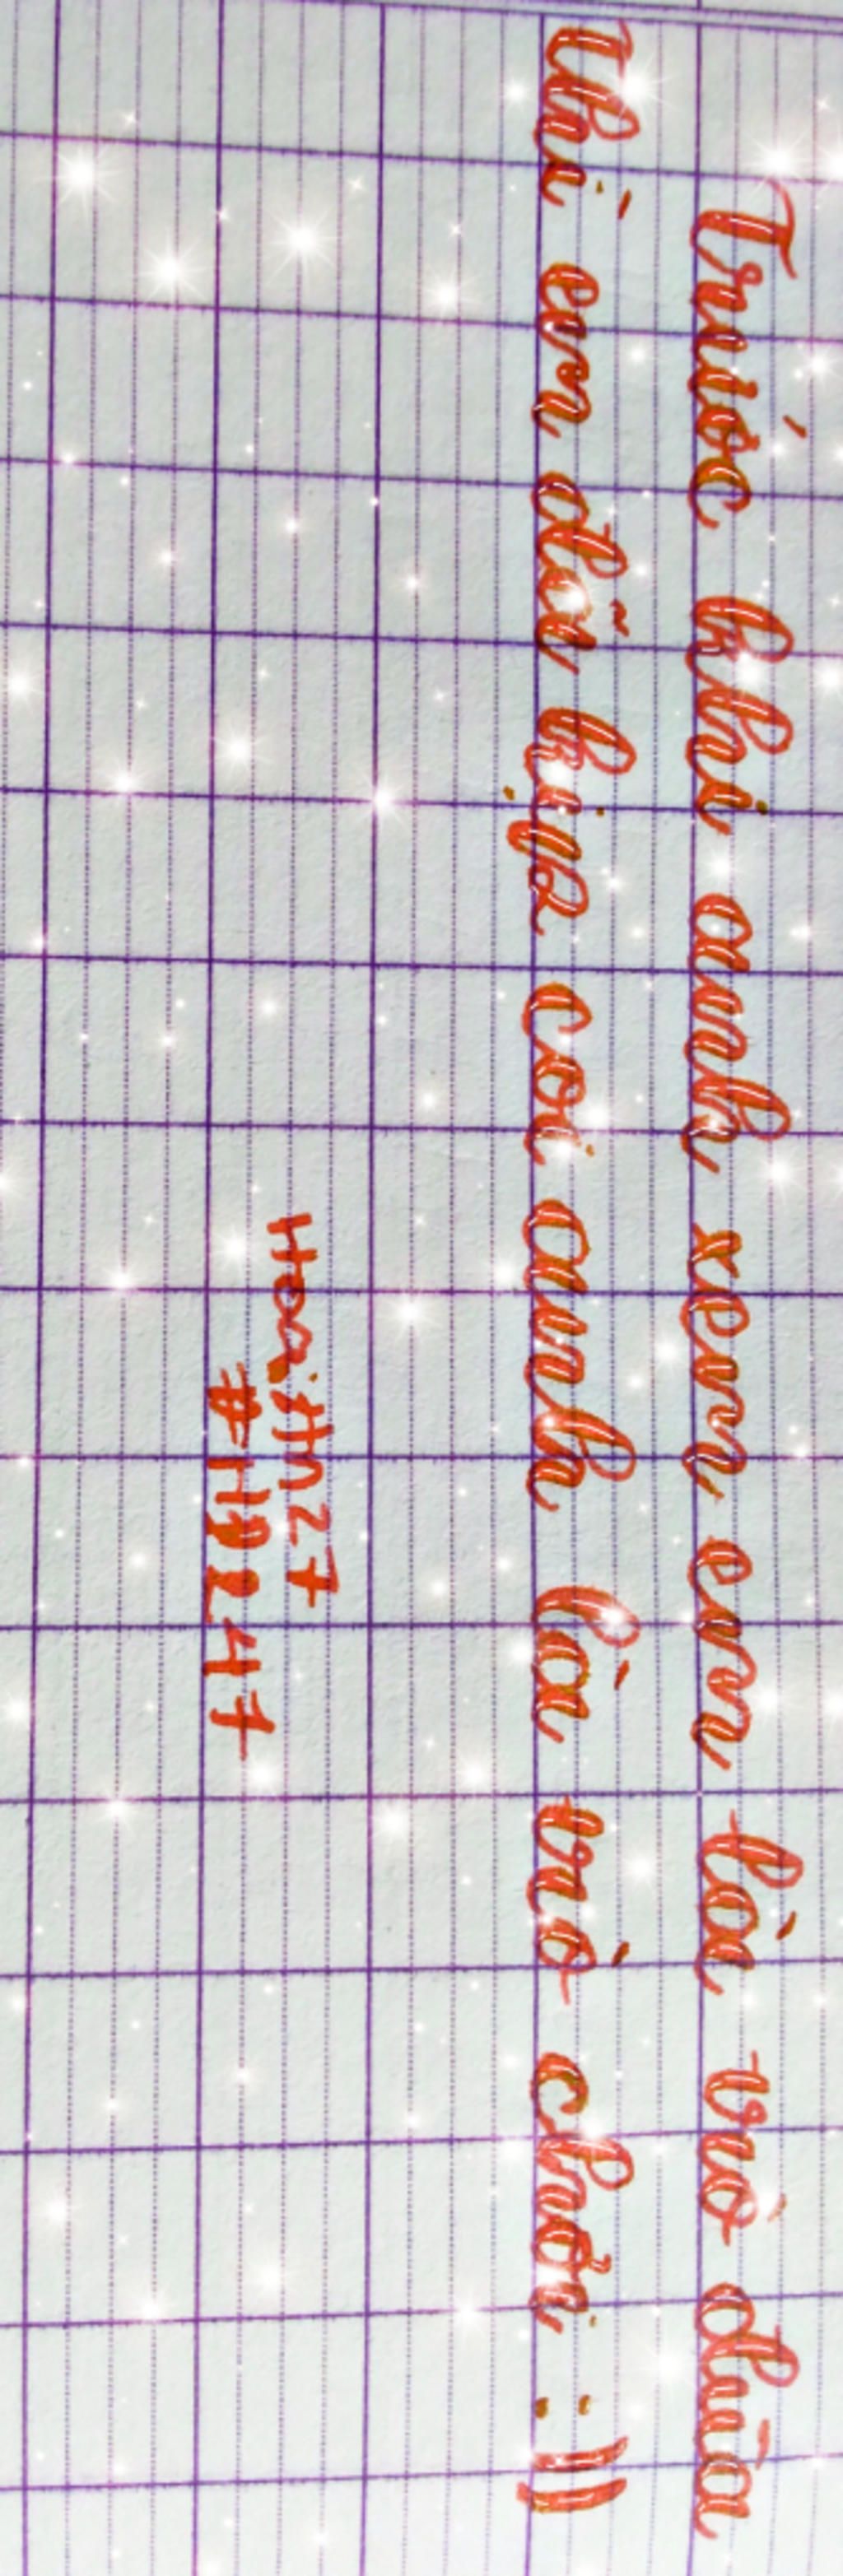 Trước khi anh xem em là trò đùa
Thì em đã kịp coi anh là trò chơi :))
#H1927